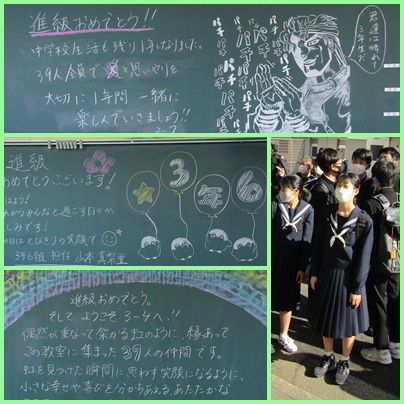 進級おめでとう!!
中学校生活も残り1年となりました。
39人全員で 思いやりを
大切に1年間 一緒に
楽しんでいきましょう!!
パチ パチ パチ パチ パチ パチ パチ パチ
君達は晴れて
3年生だ
進級
おめでとうございます!
はよう!
みんなと過ごす日々が
しみです!
とびきりの笑顔で
3年6組 担任
3 年 6
進級おめでとう。
そして、ようこそ3-4へ!!
偶然が重なって架かる虹のように、縁あって
この教室に集まった39人の仲間です。
虹を見つけた瞬間に思わず笑顔になるように、
小さな幸せや喜びを分かちあえる、あたたかな